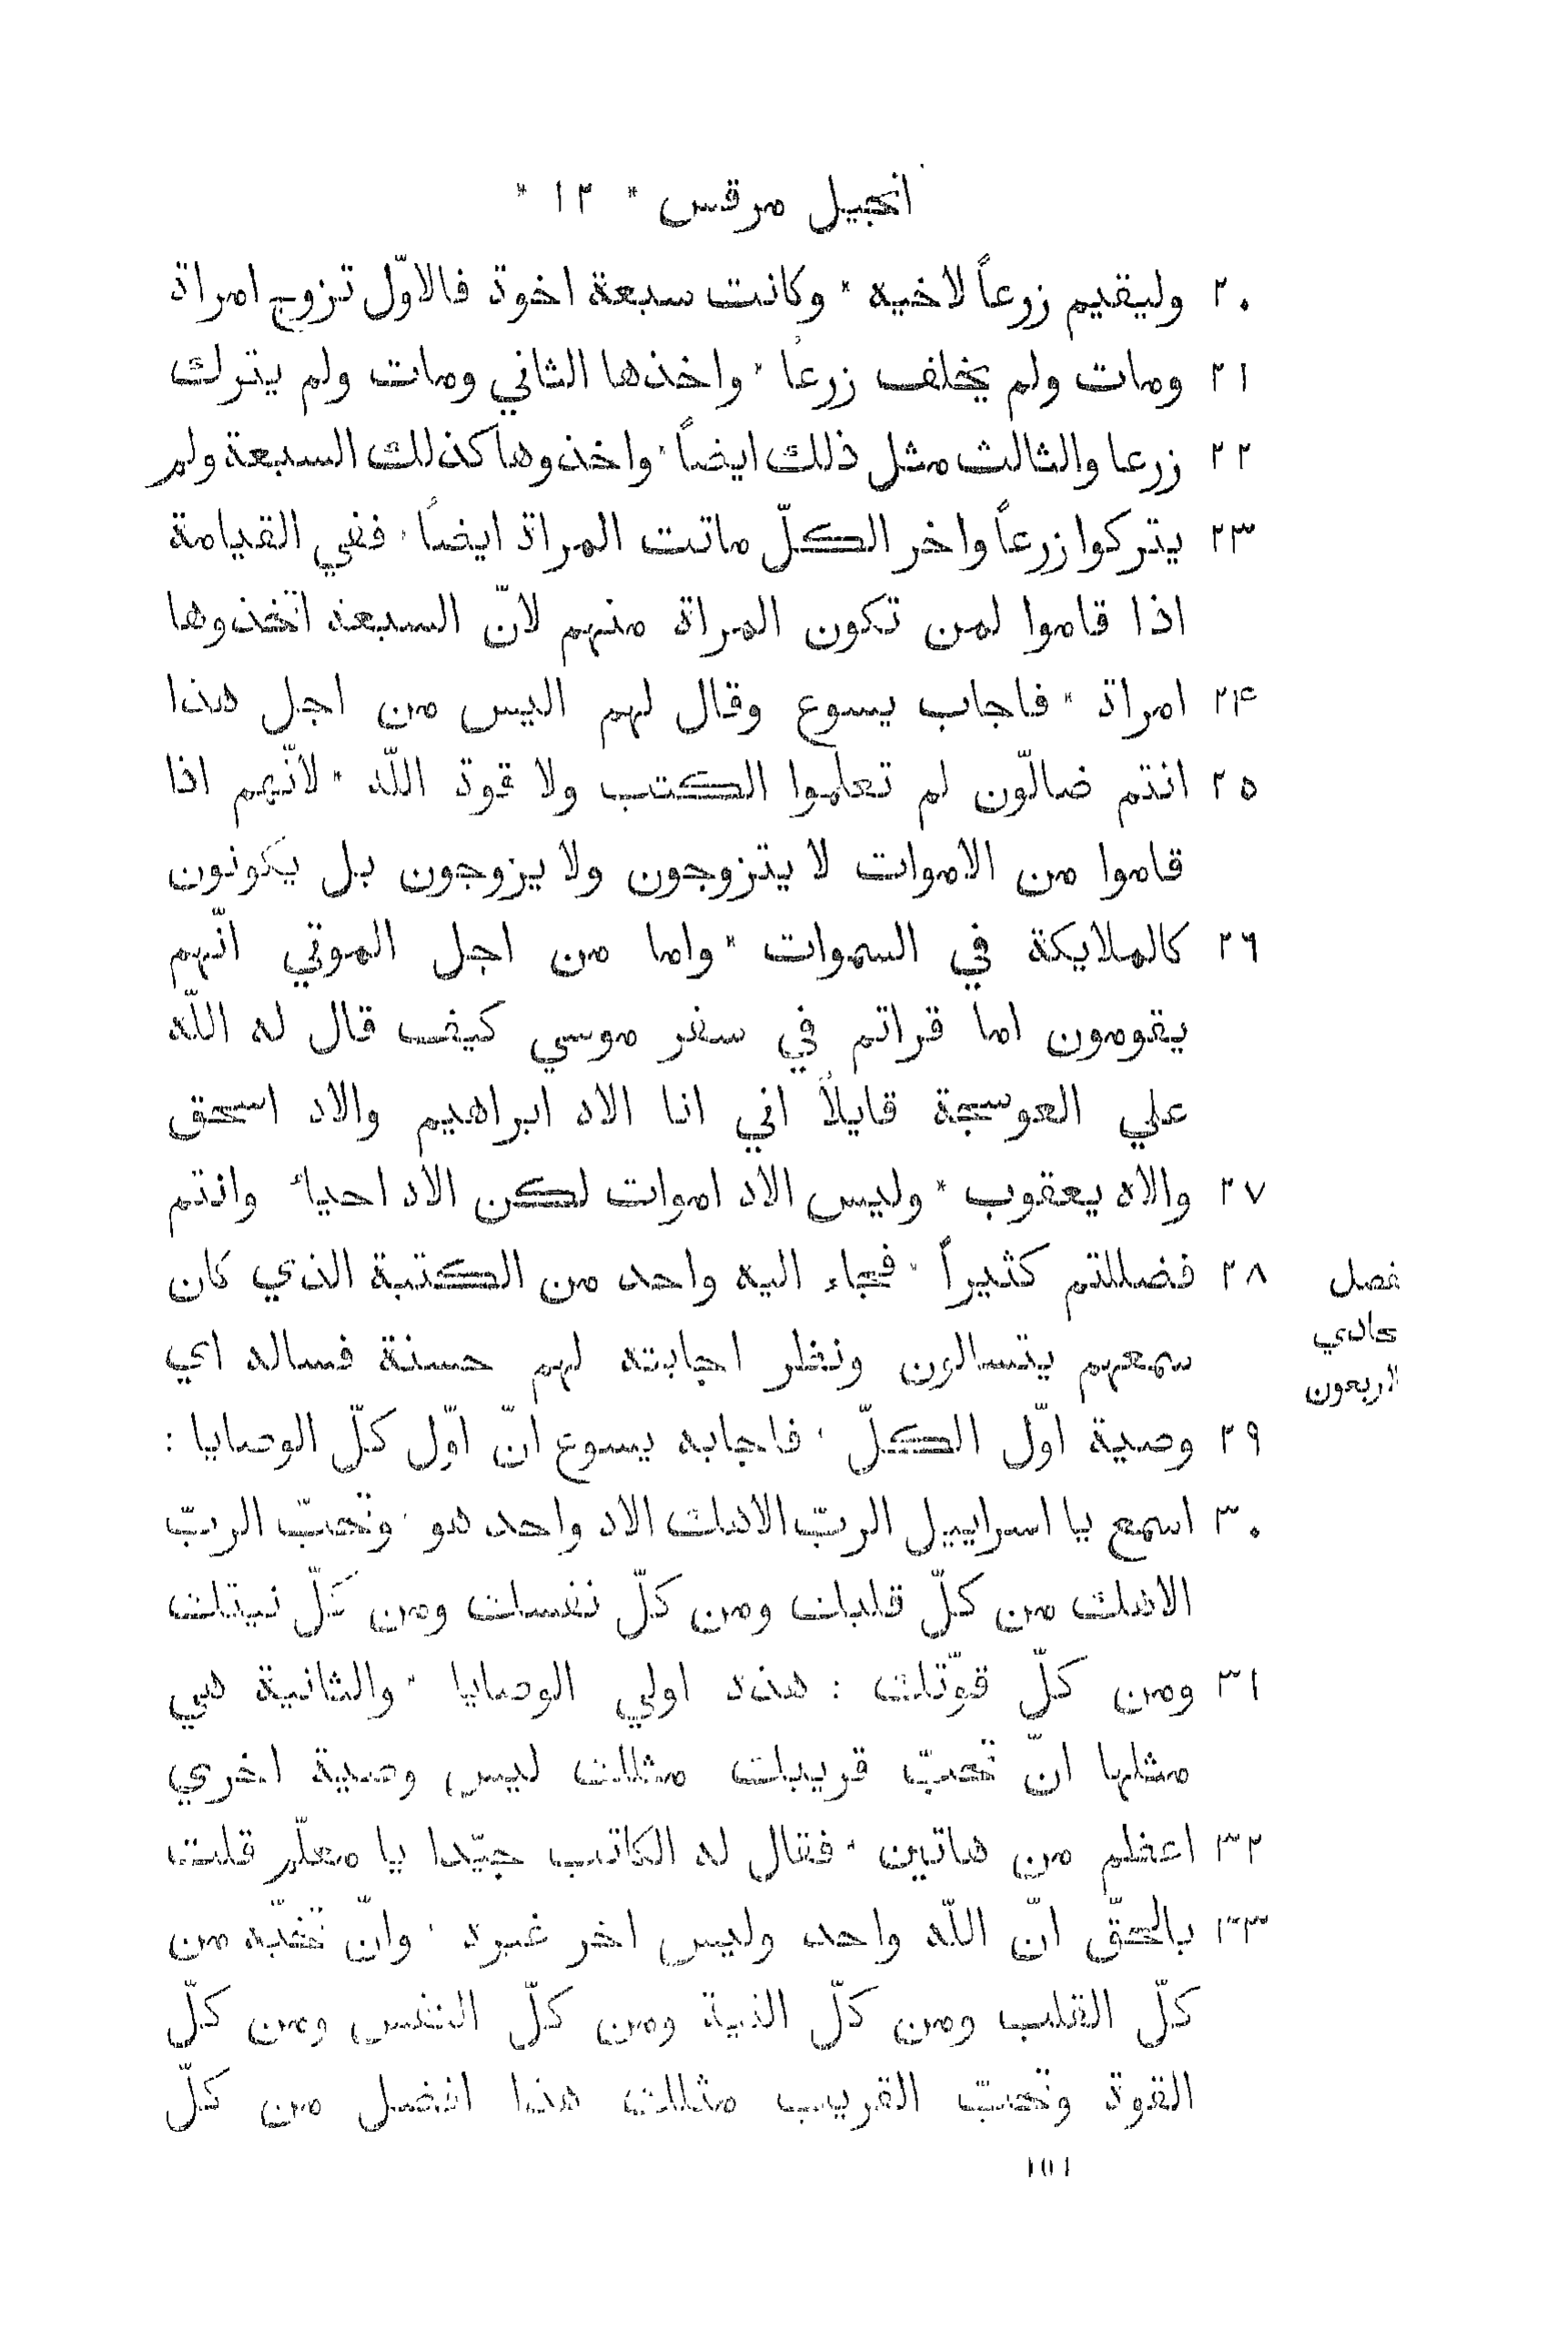 انجيل مرقس * ١٢ *
٢٠ وليقيم زرعاً لاخيه * وكانت سبعة اخوة فالاوّل تزوج امراة
٢١ ومات ولم يخلف زرعاً * واخذها الثاني ومات ولم يترك
٢٢ زرعا والثالث مثل ذلك ايضاً * واخذوها كذلك السبعة ولم
٢٣ يتركوا زرعاً واخر الكلّ ماتت المراة ايضاً * ففي القيامة
اذا قاموا لمن تكون المراة منهم لانّ السبعة اتّخذوها
٢٤ امراة * فاجاب يسوع وقال لهم اليس من اجل هذا
٢٥ انتم ضالّون لم تعلموا الكتب ولا قوة اللّه * لانّهم اذا
قاموا من الاموات لا يتزوجون ولا يزوجون بل يكونون
٢٦ كالملايكة في السموات * واما من اجل الموتي انّهم
يقومون اما قراتم في سفر موسي كيف قال له اللّه
علي العوسجة قايلاً اني انا الاه ابراهيم والاه اسحق
٢٧ والاه يعقوب * وليس الاه اموات لكن الاه احياء وانتم
٢٨ فضللتم كثيراً * فجاء اليه واحد من الكتبة الذي كان
سمعهم يتسالون ونظر اجابته لهم حسنة فساله اي
٢٩ وصية اوّل الكلّ * فاجابه يسوع انّ اوّل كلّ الوصايا :
٣٠ اسمع يا اسراييل الربّ الاهك الاه واحد هو * وتحبّ الربّ
الاهك من كلّ قلبك ومن كلّ نفسك ومن كلّ نيتك
٣١ ومن كلّ قوّتك : هذه اولي الوصايا * والثانية هي
مثلها انّ تحبّ قريبك مثلك ليس وصية اخري
٣٢ اعظم من هاتين * فقال له الكاتب جيّدا يا معلّم قلت
٣٣ بالحقّ انّ اللّه واحد وليس اخر غيره * وانّ تحبّه من
كلّ القلب ومن كلّ النية ومن كلّ النفس ومن كلّ
القوة وتحبّ القريب مثلك هذا افضل من كلّ
فصل
حادي
لاربعون
١٥١